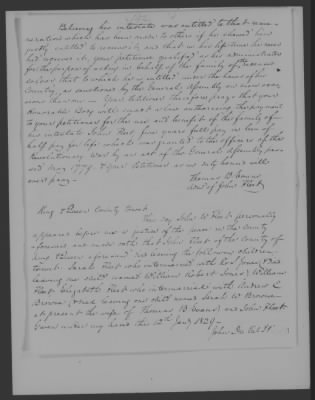 Believing his intestate was entitled to that
has been made to others if he should have
entitled to remunity and that in his life time he never
had received it, your petitioner qualified as his administrator
for the purpose of asking in behalf of the family of deceased
soldier that to which he is entitled under the laws of his
Country, as sanctioned by the General Assembly on
Your Petitioner therefore prays that your
Honorable body will enact a law authorising the payment
to your petitioner for the use and benefit of the family of
his intestate John Fleet five years full pay in lieu of
half pay for life which was granted to the officers of the
Revolutionary War by an act of the General Assembly
May 1779. & your Petitioner as in duty bound will
ever pray.
Thomas B. Evans
adm of John Fleet
King & Queen County towit.
This day John W. Fleet personally
appeared before me a justice of the peace in the County
aforesaid and made oath that John Fleet of the County of
King & Queen aforesaid died leaving the following children
towit: Sarah Fleet who intermarried with Jones, & died
leaving one child named William Robert Jones, William
Fleet, Elizabeth Fleet who intermarried with Andrew C
Browne, & died leaving one child named Sarah W. Browne
at present the wife of Thomas B Evans, and John Fleet
Given under my hand this 10th Jany 1829.
John